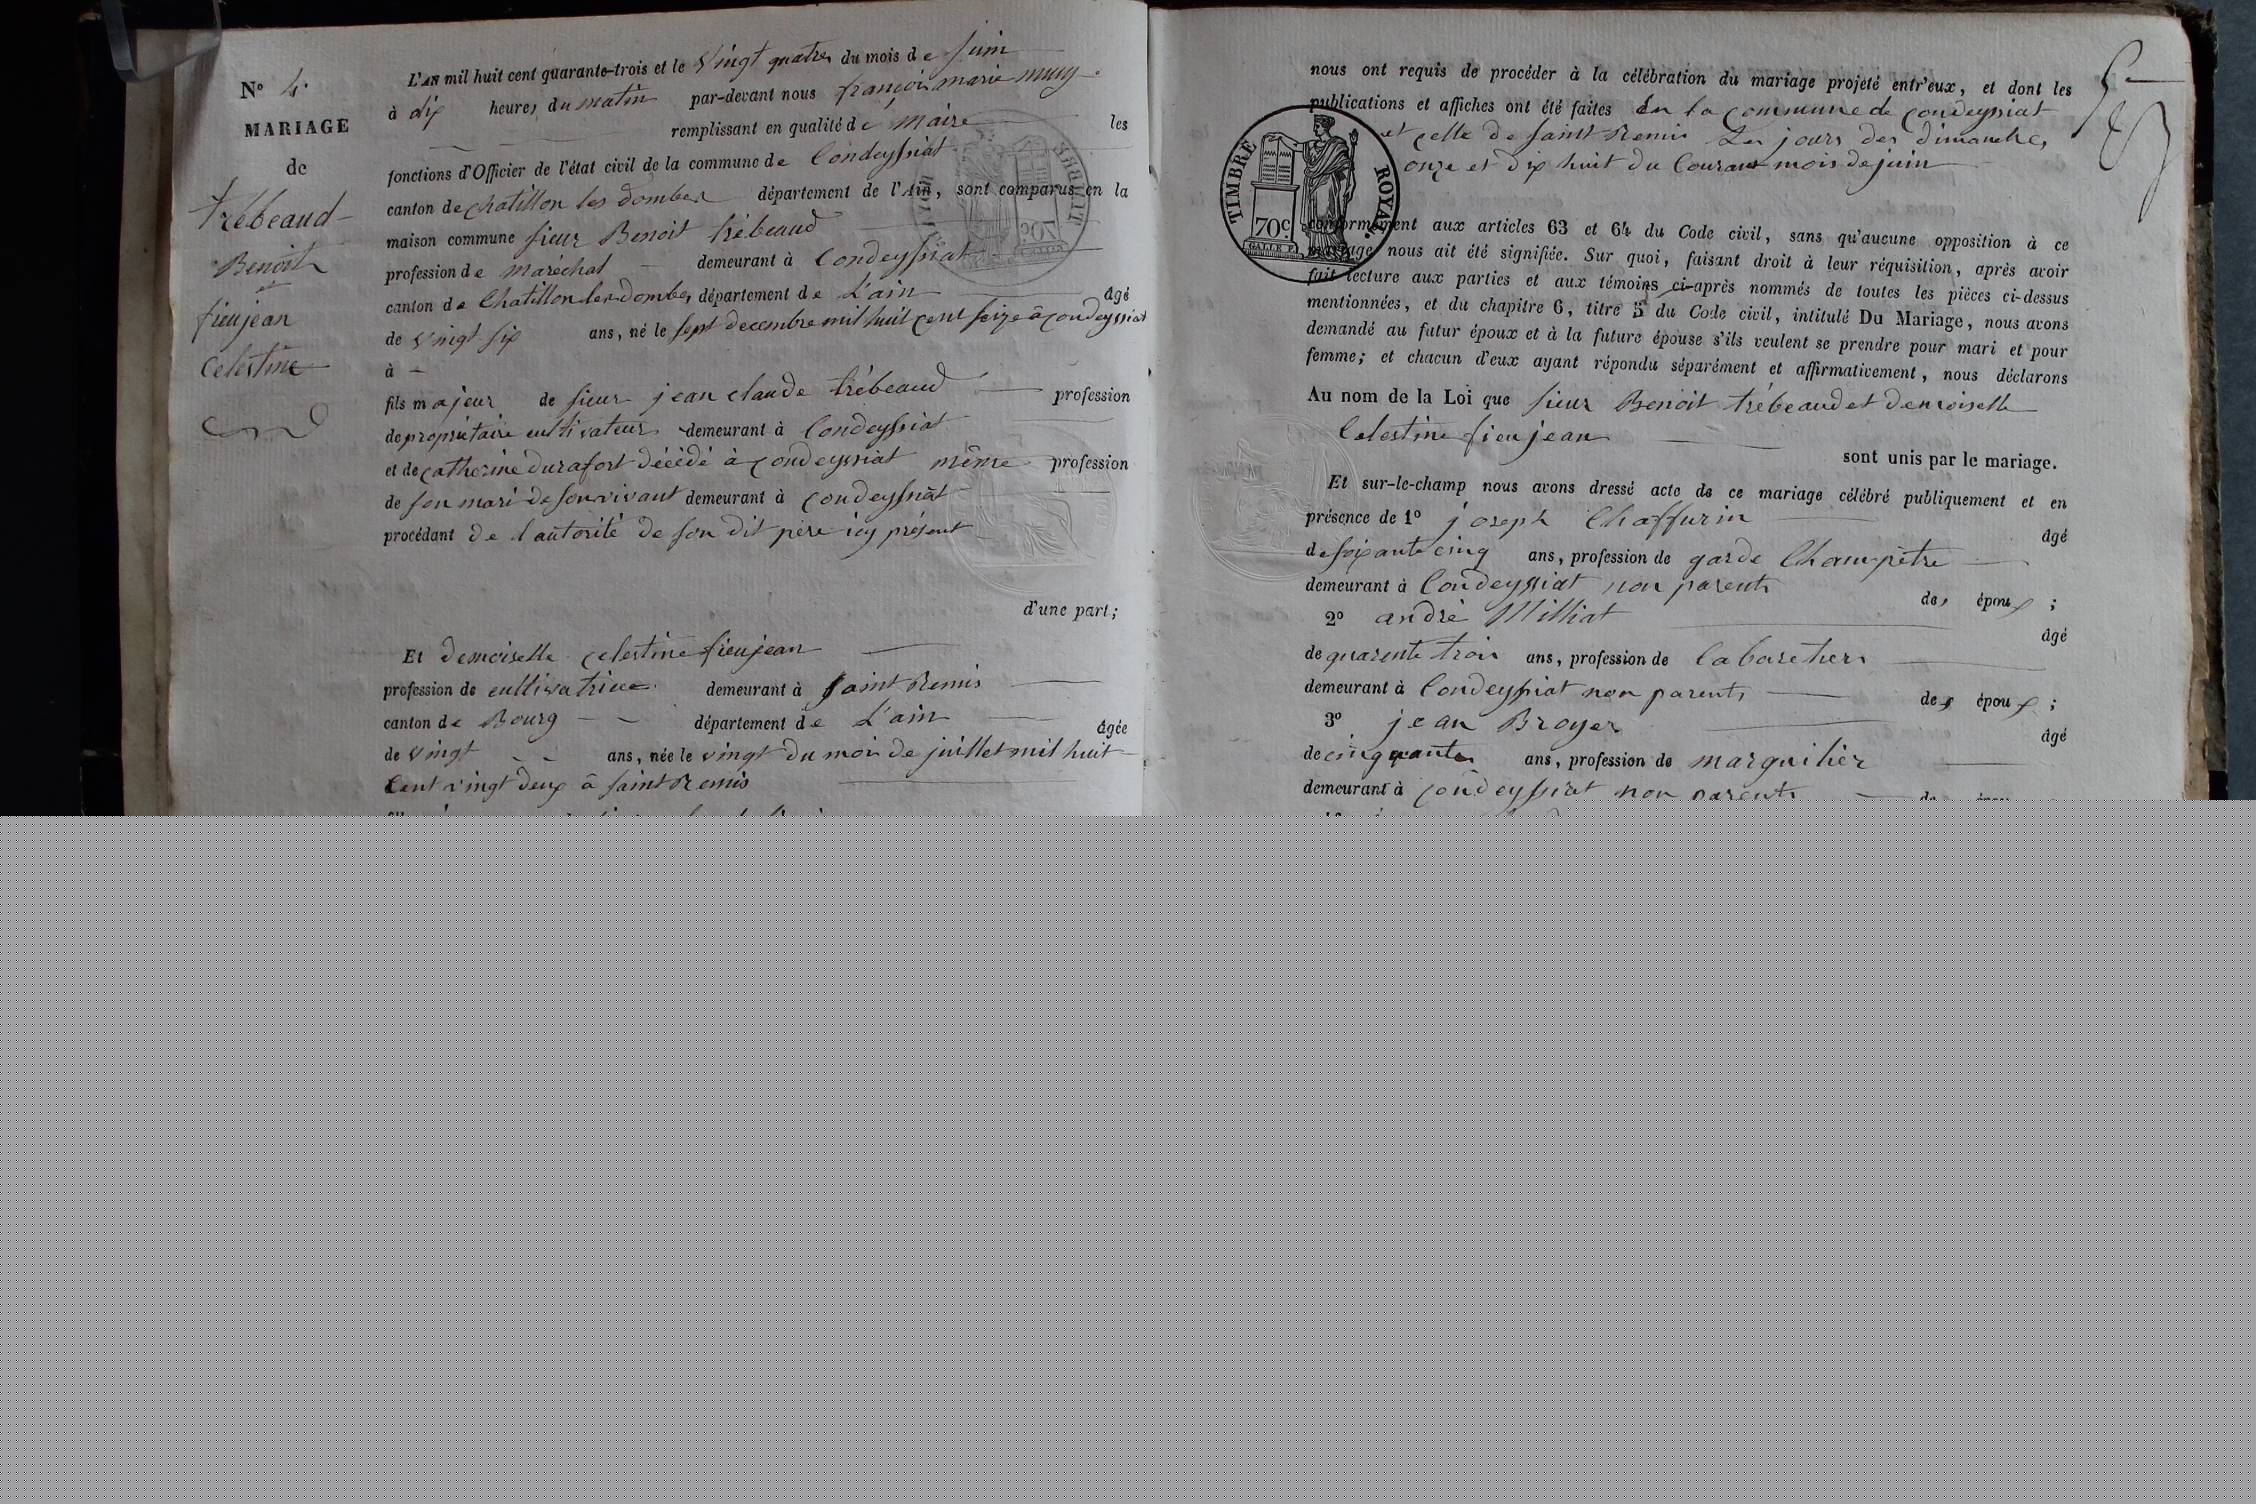 N° 4.
MARIAGE
de
trébeaud
Benoit
et
fieujean
Celestine
L'AN mil huit cent quarante-trois et le vingt quatre du mois de juin
à dix heures du matin par-devant nous françois marie muy
remplissant en qualité de maire les
fonctions d'Officier de l'état civil de la commune de Condeyssiat
canton de chatillon les dombes département de l'Ain, sont comparus en la
maison commune sieur Benoit trébeaud
profession de maréchal demeurant à Condeyssiat
canton de Chatillon les Dombes département de L'ain âgé
de vingt six ans, né le sept decembre mil huit cent seize à condeyssiat
à
fils majeur de sieur jean claude trébeaud profession
de propriétaire cultivateur demeurant à Condeyssiat
et de catherine durafort décédé à condeyssiat même profession
de son mari de son vivant demeurant à condeyssiat
procédant de l'autorité de son dit père icy présent
d'une part;
Et demoiselle celestine fieujean
profession de cultivatrice demeurant à saint Remis
canton de Bourg département de L'ain âgée
de vingt ans, née le vingt du mois de juillet mil huit
Cent vingt deux à saint Remis
nous ont requis de procéder à la célébration du mariage projeté entr'eux, et dont les
publications et affiches ont été faites En la commune de condeyssiat
et celle de saint Remis Les jours des dimanches
onze et dix huit du Courant mois de juin
TIMBRE ROYAL
70c
conformément aux articles 63 et 64 du Code civil, sans qu'aucune opposition à ce
mariage nous ait été signifiée. Sur quoi, faisant droit à leur réquisition, après avoir
fait lecture aux parties et aux témoins ci-après nommés de toutes les pièces ci-dessus
mentionnées, et du chapitre 6, titre 5 du Code civil, intitulé Du Mariage, nous avons
demandé au futur époux et à la future épouse s'ils veulent se prendre pour mari et pour
femme; et chacun d'eux ayant répondu séparément et affirmativement, nous déclarons
Au nom de la Loi que sieur Benoit trébeaud et demoiselle
Celestine fieujean
sont unis par le mariage.
Et sur-le-champ nous avons dressé acte de ce mariage célébré publiquement et en
présence de 1° joseph Chaffurin
âgé
de soixante cinq ans, profession de garde Champêtre
demeurant à Condeyssiat non parents des époux ;
2° andré Milliat
âgé
de quarente trois ans, profession de Cabaretier
demeurant à Condeyssiat non parents des époux ;
3° jean Broyer
âgé
de cinquante ans, profession de marguilier
demeurant à condeyssiat non parents